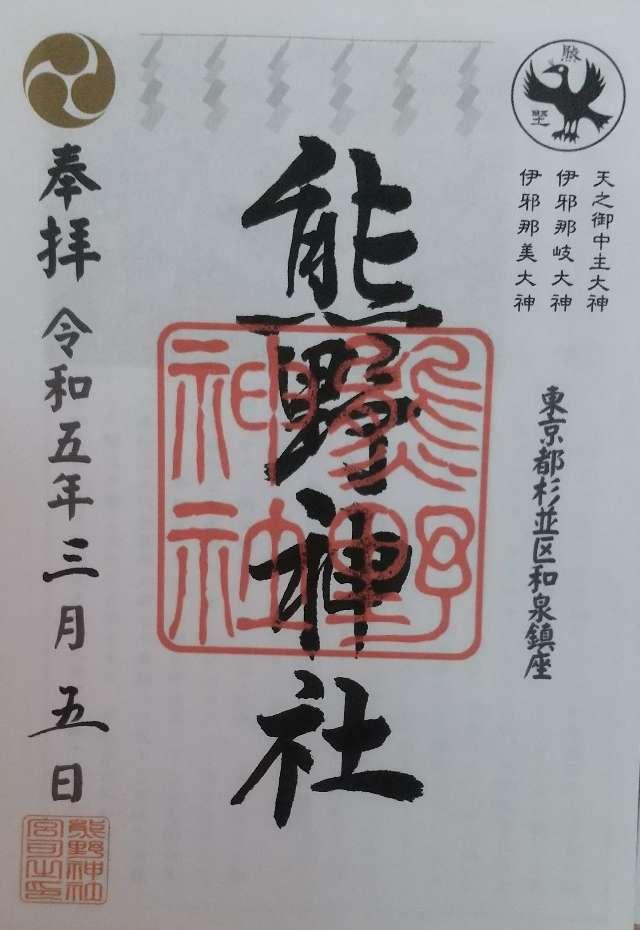 勝
堅
天之御中主大神
伊邪那岐大神
伊邪那美大神
東京都杉並区和泉鎮座
熊野神社
熊野
神社
奉拝 令和五年三月五日
熊野神社
宮司之印